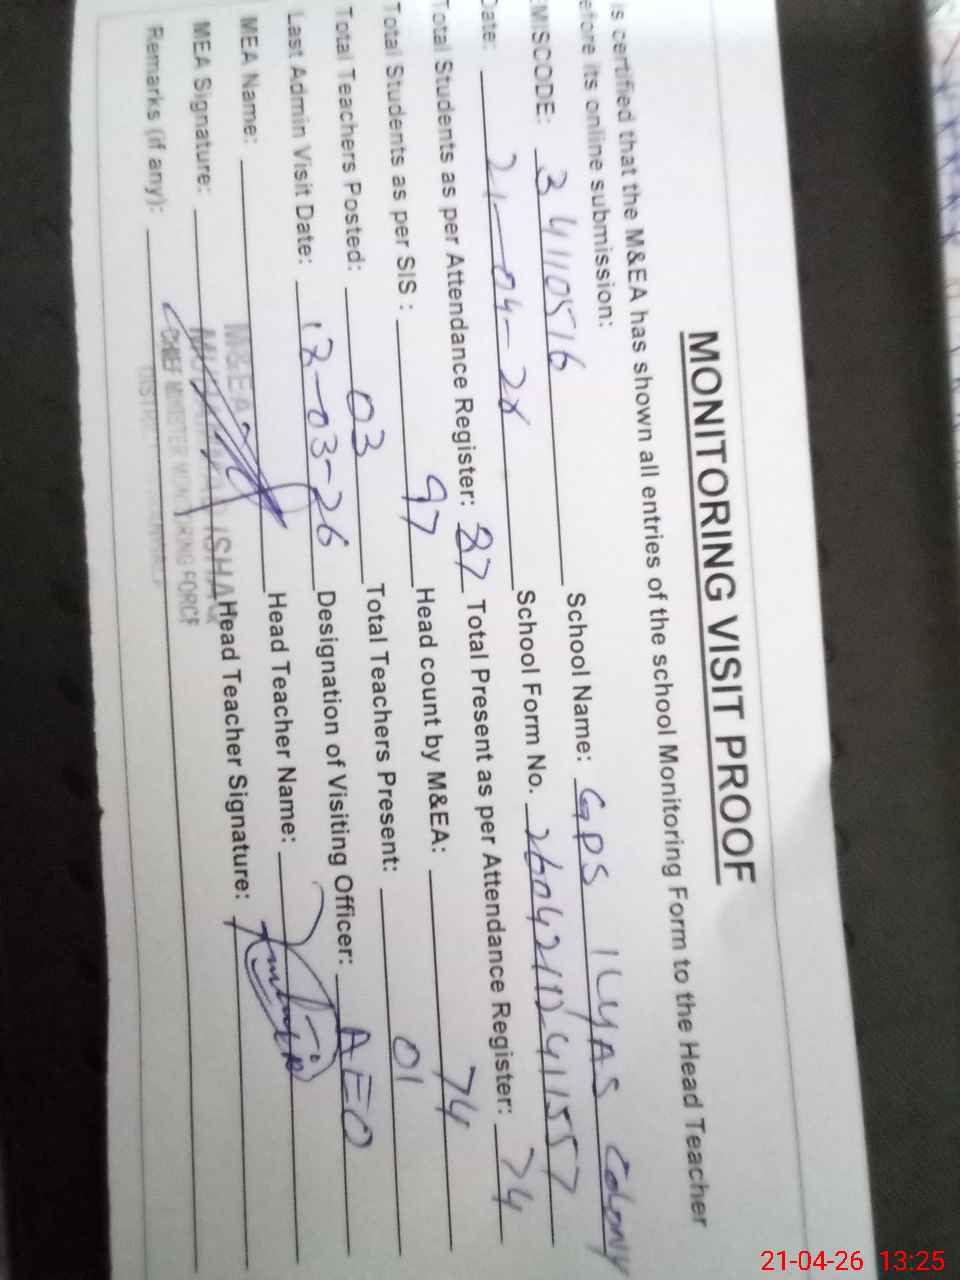 MONITORING VISIT PROOF
is certified that the M&EA has shown all entries of the school Monitoring Form to the Head Teacher
efore its online submission:
EMISCODE: 34110516 School Name: GPS ILYAS Colony
Date: 21-04-26 School Form No.
Total Students as per Attendance Register: 97 Total Present as per Attendance Register: 74
Total Students as per SIS : 97 Head count by M&EA: 74
Total Teachers Posted: 03 Total Teachers Present: 01
Last Admin Visit Date: -03-26 Designation of Visiting Officer: AEO
MEA Name: Head Teacher Name:
MEA Signature: Head Teacher Signature:
Remarks (if any):
M&EA
ISHAQ
CHIEF MINISTER MONITORING FORCE
21-04-26 13:25